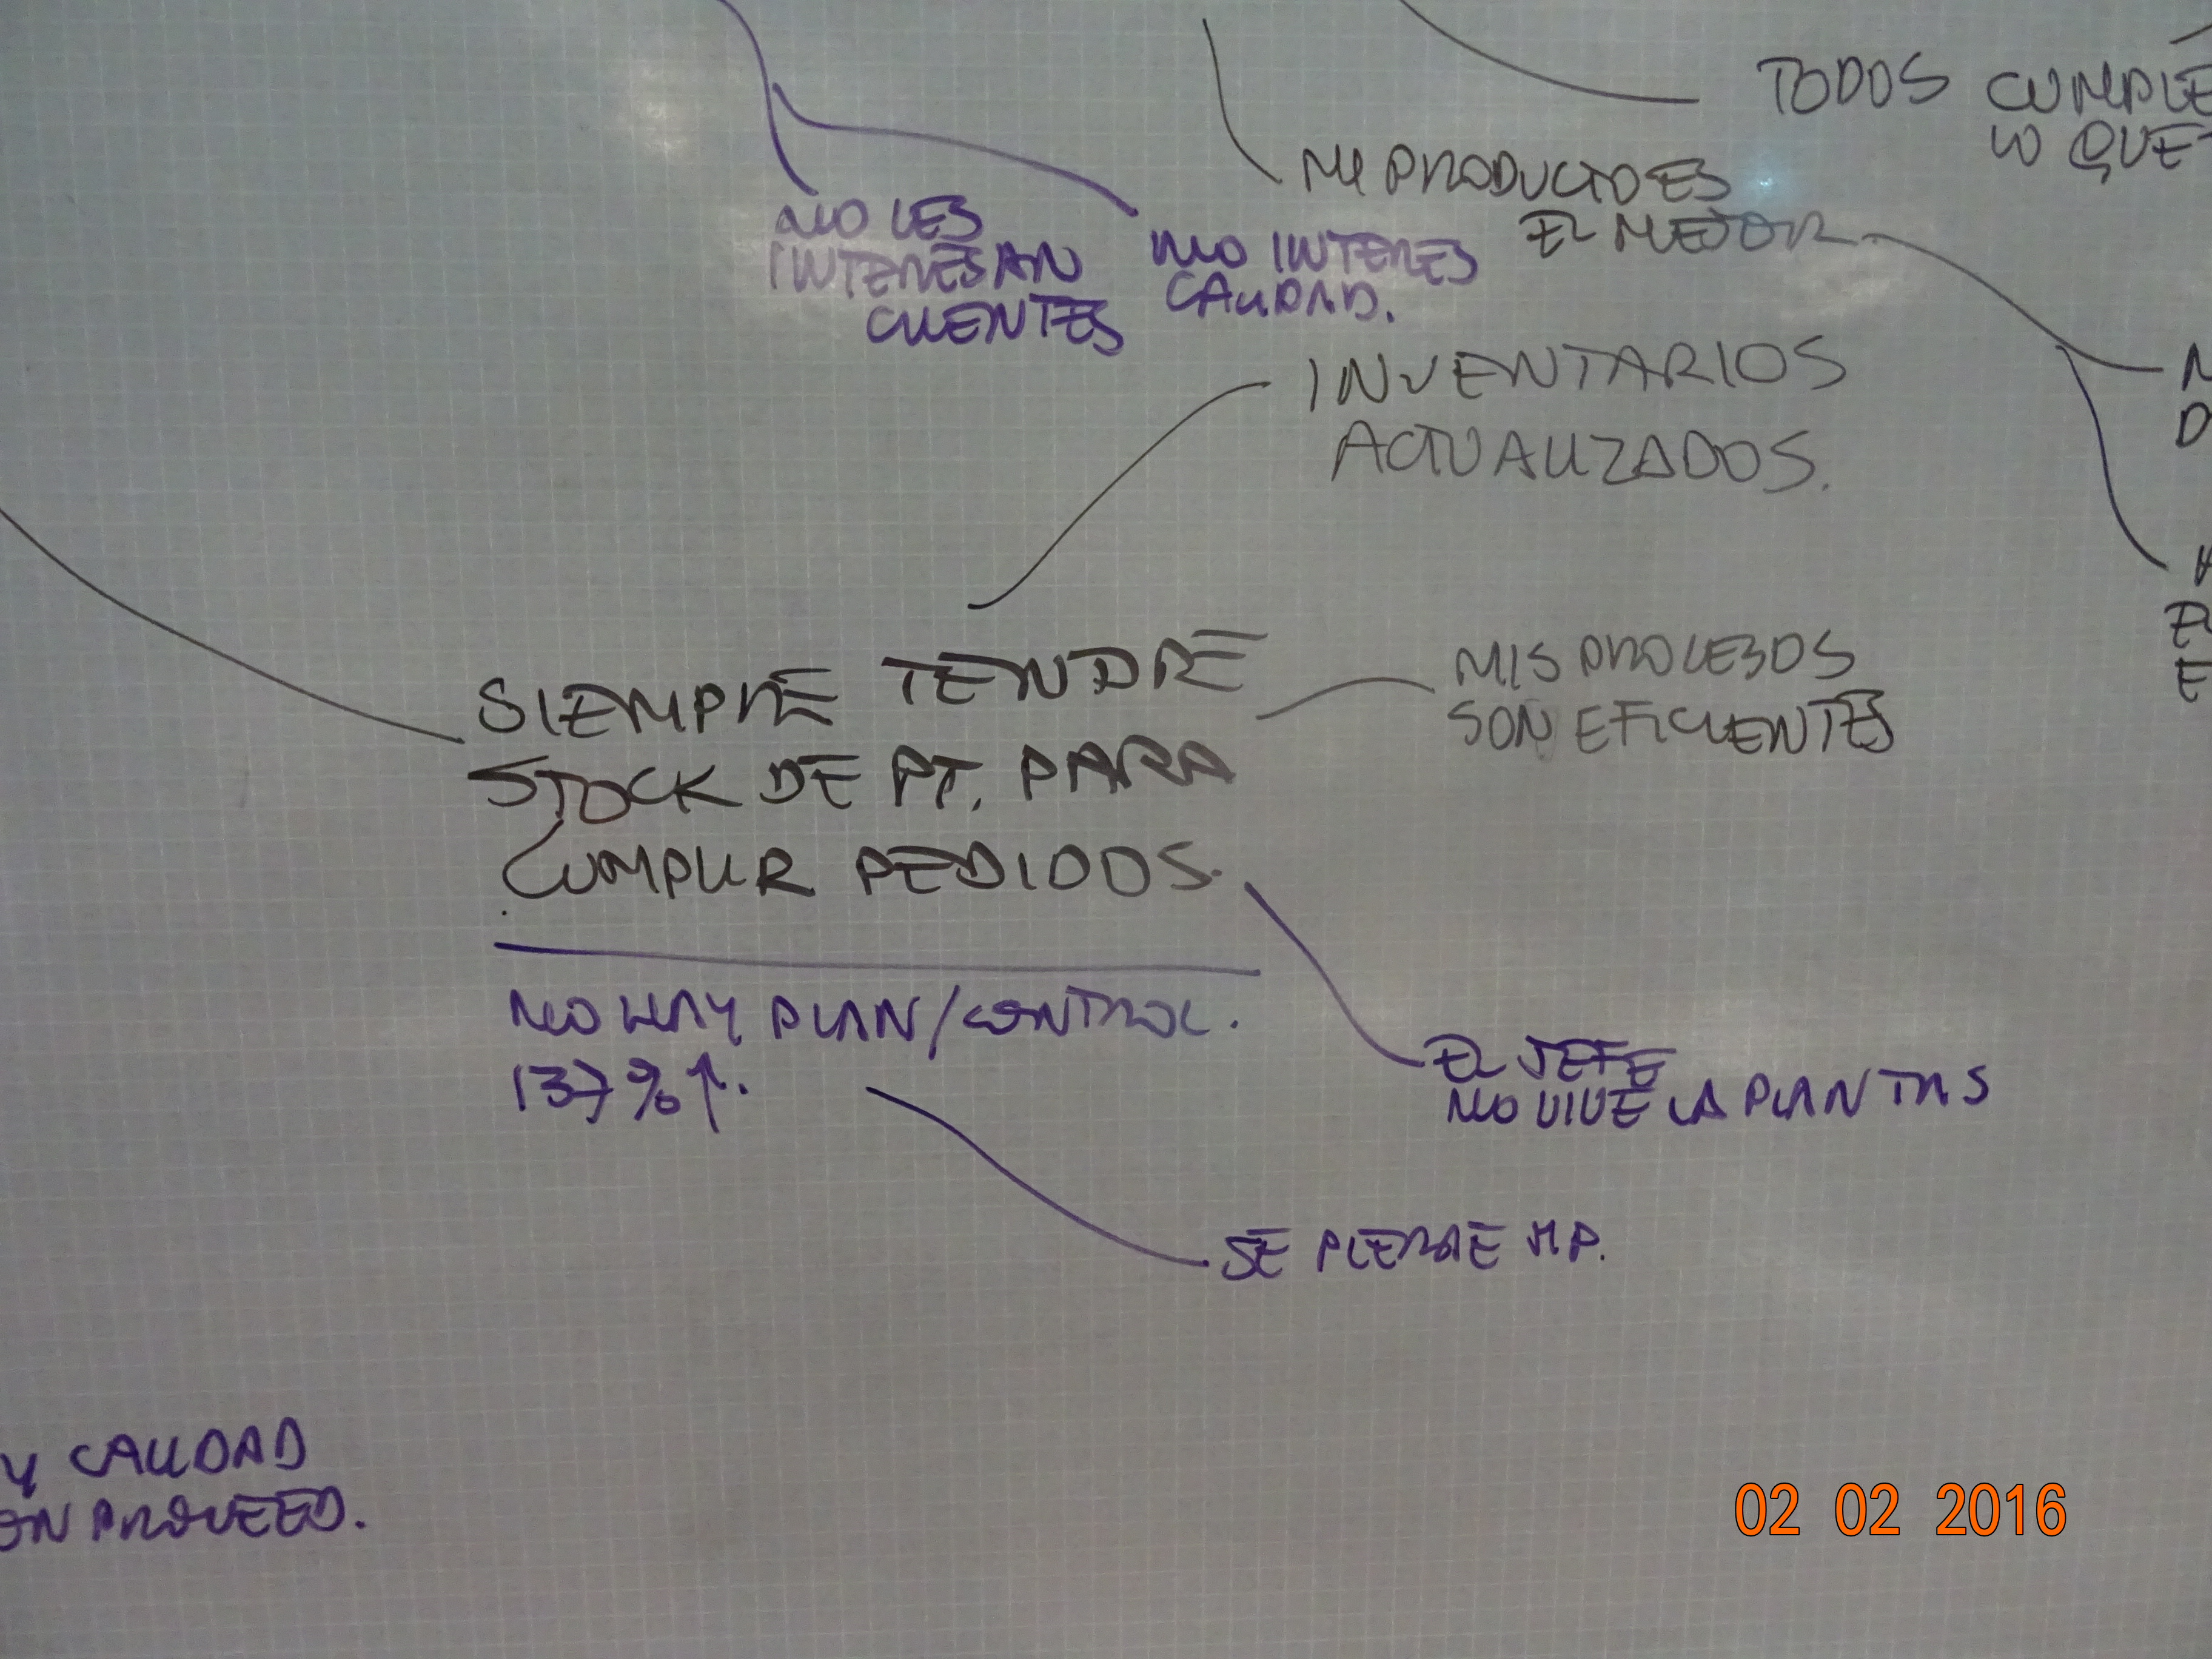 TODOS CUMPLE
LO QUE
MI PRODUCTO ES
EL MEJOR
NO LES
INTERESAN
CLIENTES
NO INTERES
CALIDAD.
INVENTARIOS
ACTUALIZADOS.
SIEMPRE TENDRE
STOCK DE PT. PARA
CUMPLIR PEDIDOS.
MIS PROCESOS
SON EFICIENTES
NO HAY PLAN/CONTROL.
137%↑.
EL JEFE
NO VIVE LA PLANTAS
SE PIERDE MP.
Y CALIDAD
ON PROVEED.
02 02 2016